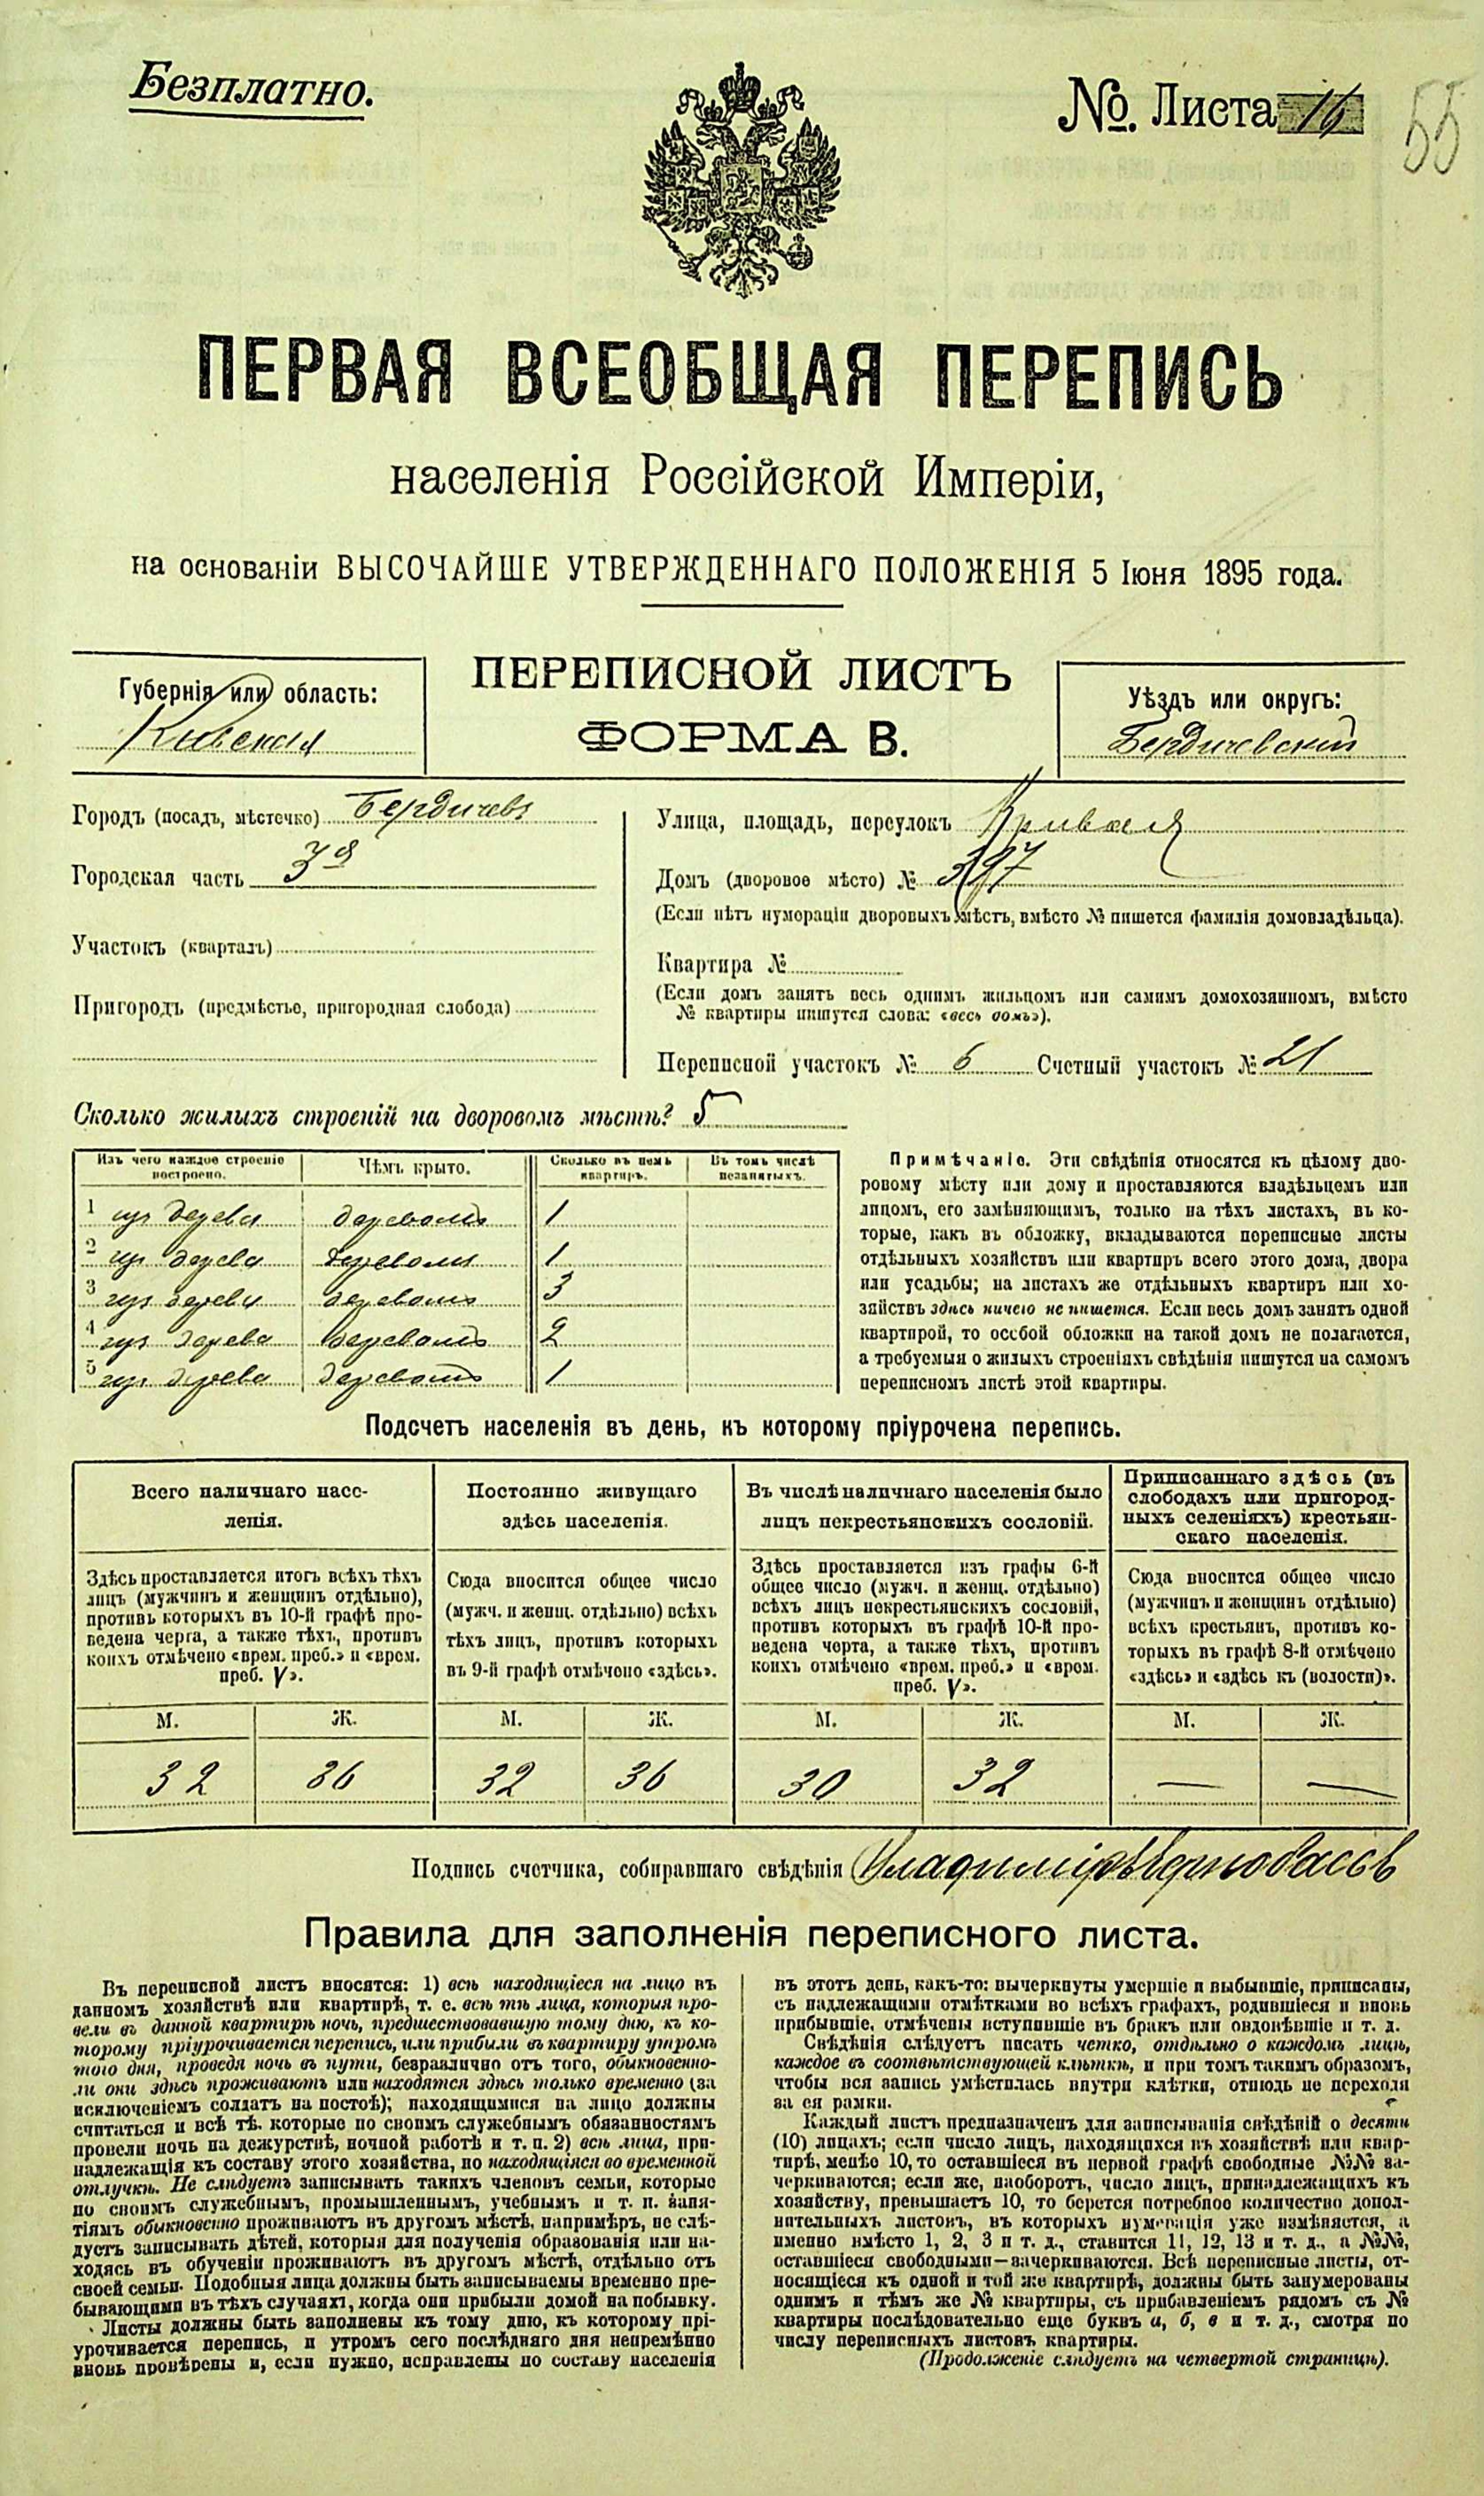 Безплатно.
№. Листа 16
55
ПЕРВАЯ ВСЕОБЩАЯ ПЕРЕПИСЬ
населенія Россійской Имперіи,
на основаніи ВЫСОЧАЙШЕ УТВЕРЖДЕННАГО ПОЛОЖЕНІЯ 5 Іюня 1895 года.
ПЕРЕПИСНОЙ ЛИСТЪ
ФОРМА В.
Губернія или область:
Кіевская
Уѣздъ или округъ:
Бердичевскій
Городъ (посадъ, мѣстечко) Бердичевъ
Городская часть 3я
Участокъ (кварталъ)
Пригородъ (предмѣстье, пригородная слобода)
Улица, площадь, переулокъ Кривая
Домъ (дворовое мѣсто) № 397
(Если нѣтъ нумераціи дворовыхъ мѣстъ, вмѣсто № пишется фамилія домовладѣльца).
Квартира №
(Если домъ занятъ весь однимъ жильцомъ или самимъ домохозяиномъ, вмѣсто
№ квартиры пишутся слова: «весь домъ»).
Переписной участокъ № 6 Счетный участокъ № 21
Сколько жилыхъ строеній на дворовомъ мѣстѣ? 5
Изъ чего каждое строеніе построено. Чѣмъ крыто. Сколько въ немъ квартиръ. Въ томъ числѣ незанятыхъ.
1 изъ дерева деревомъ 1
2 изъ дерева деревомъ 1
3 изъ дерева деревомъ 3
4 изъ дерева деревомъ 2
5 изъ дерева деревомъ 1
Примѣчаніе. Эти свѣдѣнія относятся къ цѣлому дво-
ровому мѣсту или дому и проставляются владѣльцемъ или
лицомъ, его замѣняющимъ, только на тѣхъ листахъ, въ ко-
торые, какъ въ обложку, вкладываются переписные листы
отдѣльныхъ хозяйствъ или квартиръ всего этого дома, двора
или усадьбы; на листахъ же отдѣльныхъ квартиръ или хо-
зяйствъ здѣсь ничего не пишется. Если весь домъ занятъ одной
квартирой, то особой обложки на такой домъ не полагается,
а требуемыя о жилыхъ строеніяхъ свѣдѣнія пишутся на самомъ
переписномъ листѣ этой квартиры.
Подсчетъ населенія въ день, къ которому пріурочена перепись.
Всего наличнаго насе-
ленія.
Здѣсь проставляется итогъ всѣхъ тѣхъ
лицъ (мужчинъ и женщинъ отдѣльно),
противъ которыхъ въ 10-й графѣ про-
ведена черта, а также тѣхъ, противъ
коихъ отмѣчено «врем. преб.» и «врем.
преб. V».
Постоянно живущаго
здѣсь населенія.
Сюда вносится общее число
(мужч. и женщ. отдѣльно) всѣхъ
тѣхъ лицъ, противъ которыхъ
въ 9-й графѣ отмѣчено «здѣсь».
Въ числѣ наличнаго населенія было
лицъ некрестьянскихъ сословій.
Здѣсь проставляется изъ графы 6-й
общее число (мужч. и женщ. отдѣльно)
всѣхъ лицъ некрестьянскихъ сословій,
противъ которыхъ въ графѣ 10-й про-
ведена черта, а также тѣхъ, противъ
коихъ отмѣчено «врем. преб.» и «врем.
преб. V».
Приписаннаго здѣсь (въ
слободахъ или пригород-
ныхъ селеніяхъ) крестьян-
скаго населенія.
Сюда вносится общее число
(мужчинъ и женщинъ отдѣльно)
всѣхъ крестьянъ, противъ ко-
торыхъ въ графѣ 8-й отмѣчено
«здѣсь» и «здѣсь къ (волости)».
М. Ж. М. Ж. М. Ж. М. Ж.
32 36 32 36 30 32 — —
Подпись счетчика, собиравшаго свѣдѣнія Владиміръ
Правила для заполненія переписного листа.
Въ переписной листъ вносятся: 1) всѣ находящіеся на лицо въ
данномъ хозяйствѣ или квартирѣ, т. е. всѣ тѣ лица, которыя про-
вели въ данной квартирѣ ночь, предшествовавшую тому дню, къ ко-
торому пріурочивается перепись, или прибыли въ квартиру утромъ
того дня, проведя ночь въ пути, безразлично отъ того, обыкновенно-
ли они здѣсь проживаютъ или находятся здѣсь только временно (за
исключеніемъ солдатъ на постоѣ); находящимися на лицо должны
считаться и всѣ тѣ, которые по своимъ служебнымъ обязанностямъ
провели ночь на дежурствѣ, ночной работѣ и т. п. 2) всѣ лица, при-
надлежащія къ составу этого хозяйства, но находящіяся во временной
отлучкѣ. Не слѣдуетъ записывать такихъ членовъ семьи, которые
по своимъ служебнымъ, промышленнымъ, учебнымъ и т. п. заня-
тіямъ обыкновенно проживаютъ въ другомъ мѣстѣ, напримѣръ, не слѣ-
дуетъ записывать дѣтей, которыя для полученія образованія или на-
ходясь въ обученіи проживаютъ въ другомъ мѣстѣ, отдѣльно отъ
своей семьи. Подобныя лица должны быть записываемы временно пре-
бывающими въ тѣхъ случаяхъ, когда они прибыли домой на побывку.
Листы должны быть заполнены къ тому дню, къ которому прі-
урочивается перепись, и утромъ сего послѣдняго дня непремѣнно
вновь провѣрены и, если нужно, исправлены по составу населенія
въ этотъ день, какъ-то: вычеркнуты умершіе и выбывшіе, приписаны,
съ надлежащими отмѣтками во всѣхъ графахъ, родившіеся и вновь
прибывшіе, отмѣчены вступившіе въ бракъ или овдовѣвшіе и т. д.
Свѣдѣнія слѣдуетъ писать четко, отдѣльно о каждомъ лицѣ,
каждое въ соотвѣтствующей клѣткѣ, и при томъ такимъ образомъ,
чтобы вся запись умѣстилась внутри клѣтки, отнюдь не переходя
за ея рамки.
Каждый листъ предназначенъ для записыванія свѣдѣній о десяти
(10) лицахъ; если число лицъ, находящихся въ хозяйствѣ или квар-
тирѣ, менѣе 10, то оставшіеся въ первой графѣ свободные №№ за-
черкиваются; если же, наоборотъ, число лицъ, принадлежащихъ къ
хозяйству, превышаетъ 10, то берется потребное количество допол-
нительныхъ листовъ, въ которыхъ нумерація уже измѣняется, а
именно вмѣсто 1, 2, 3 и т. д., ставится 11, 12, 13 и т. д., а №№,
оставшіеся свободными—зачеркиваются. Всѣ переписные листы, от-
носящіеся къ одной и той же квартирѣ, должны быть занумерованы
однимъ и тѣмъ же № квартиры, съ прибавленіемъ рядомъ съ №
квартиры послѣдовательно еще буквъ а, б, в и т. д., смотря по
числу переписныхъ листовъ квартиры.
(Продолженіе слѣдуетъ на четвертой страницѣ).